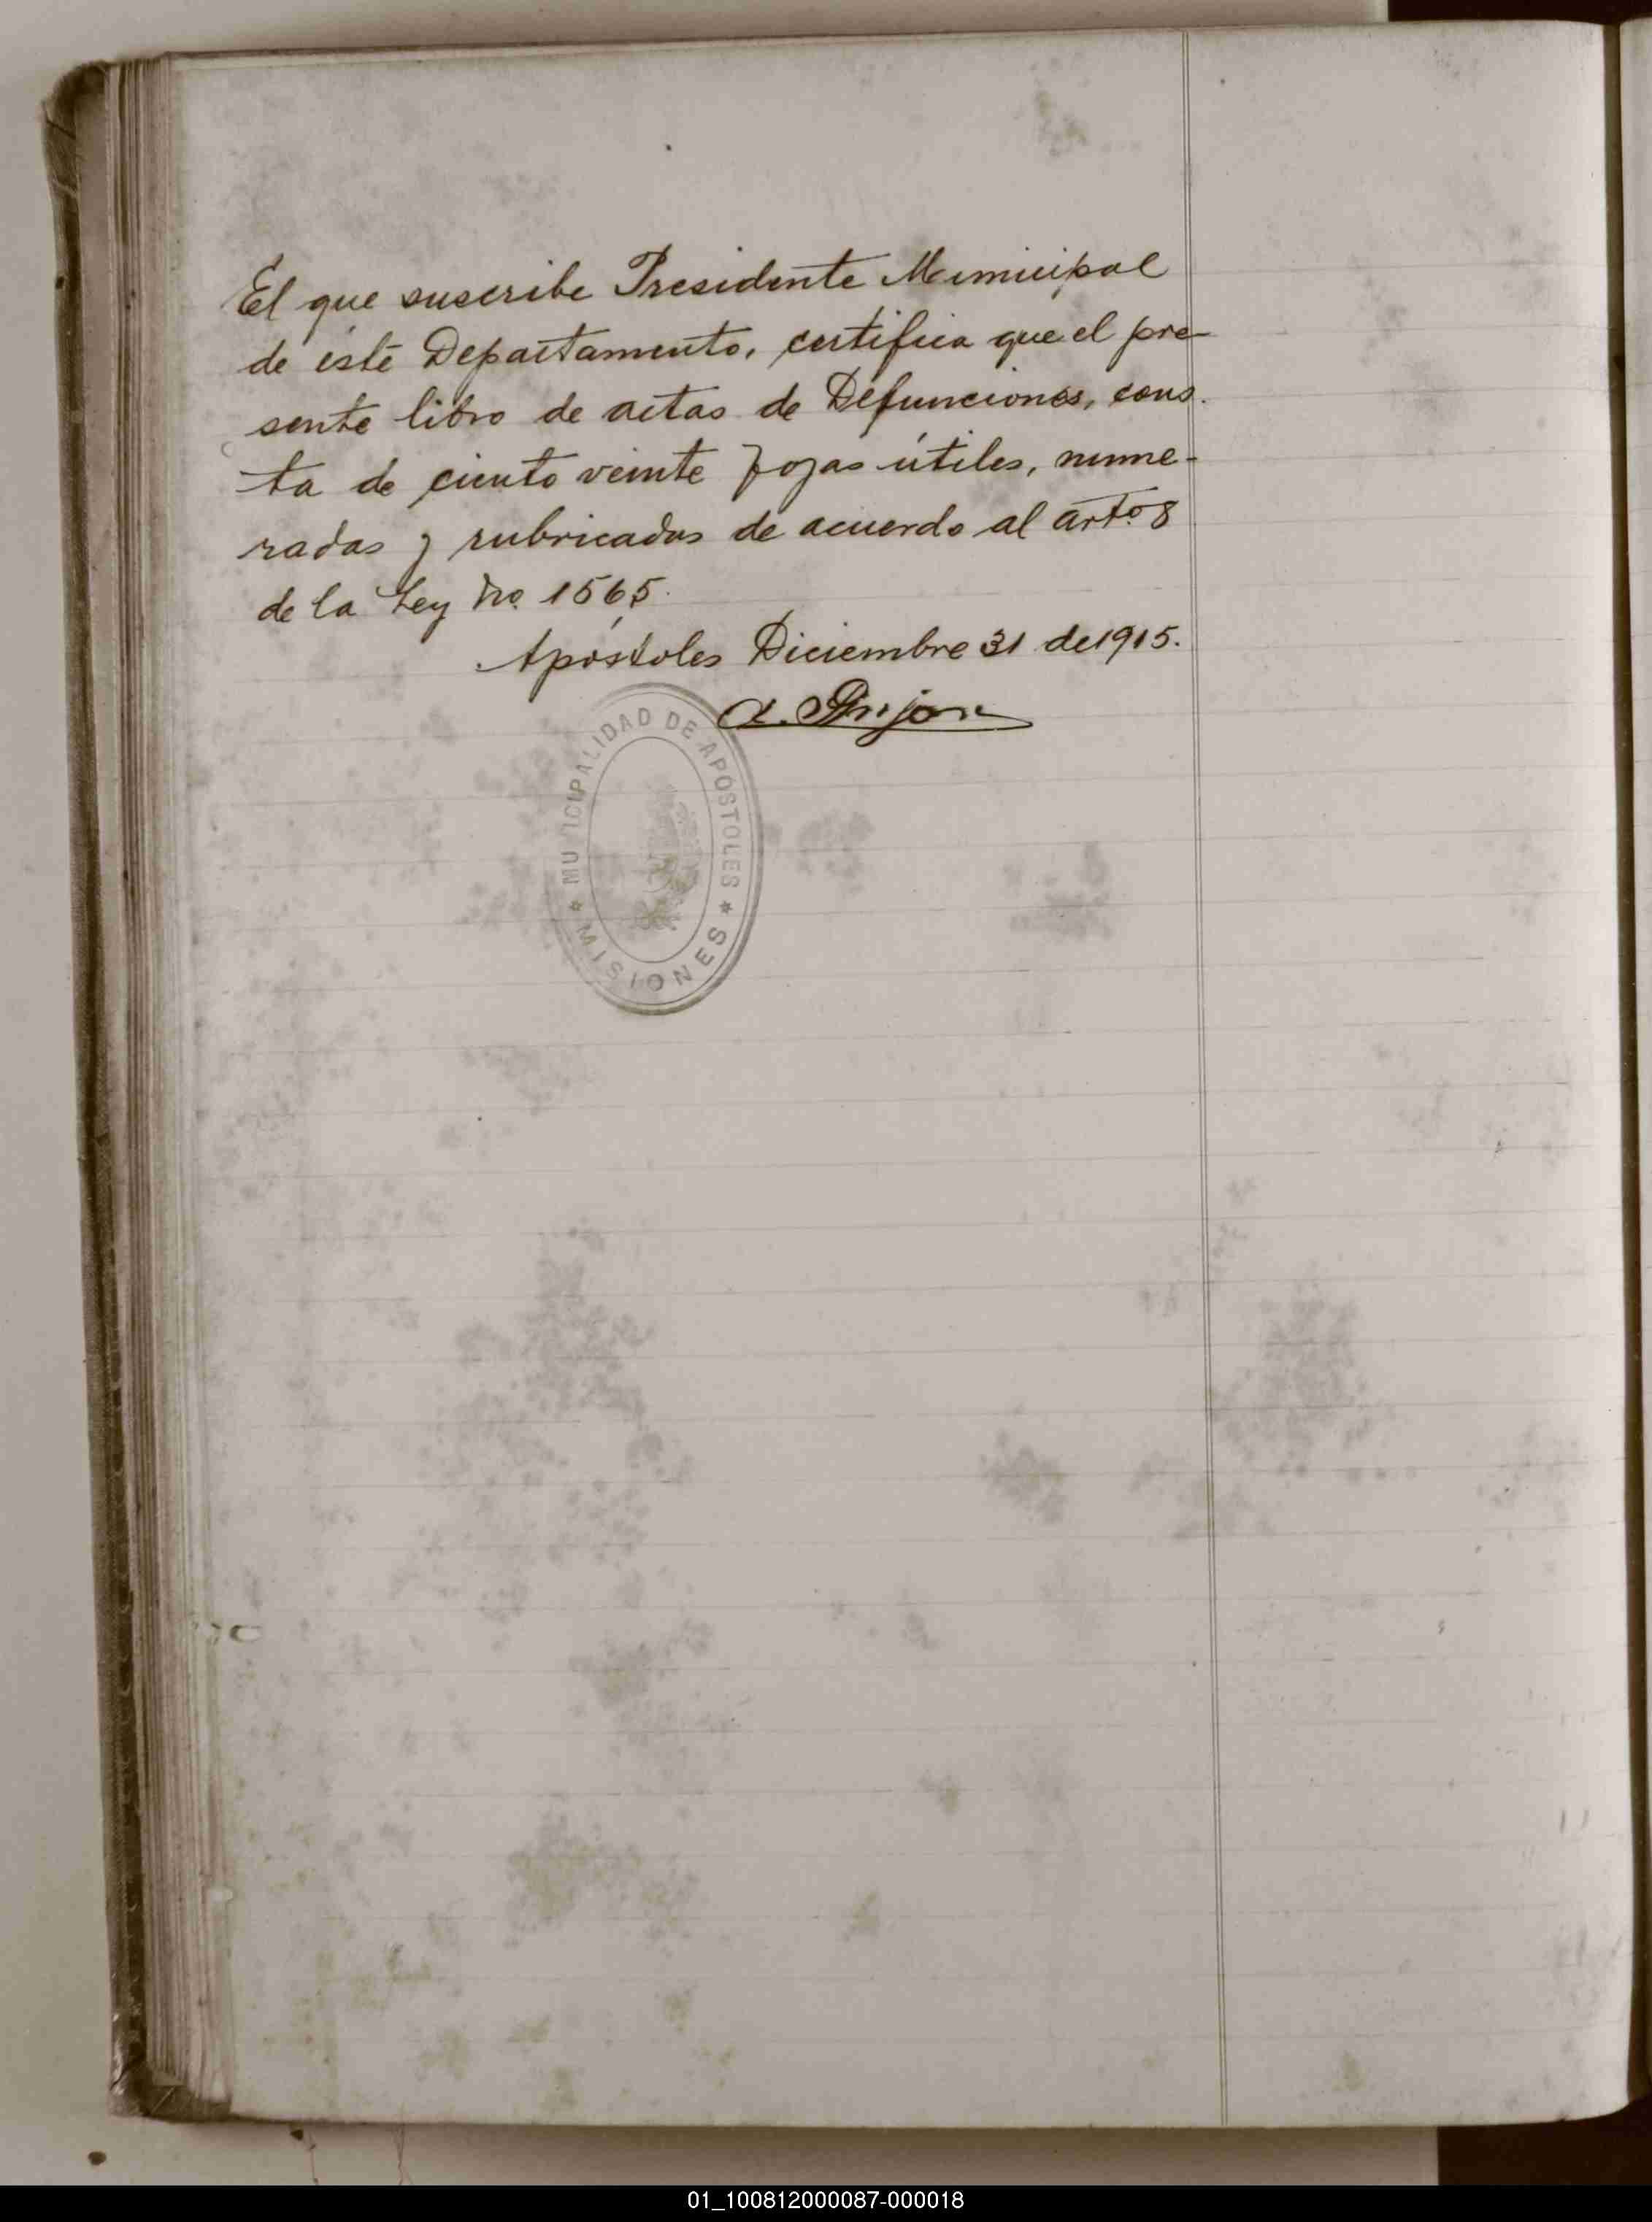 El que suscribe Presidente Municipal
de éste Departamento, certifica que el pre-
sente libro de actas de Defunciones, cons.
ta de ciento veinte fojas útiles, nume-
radas y rubricadas de acuerdo al arto 8
de la Ley No. 1565.
Apóstoles Diciembre 31 de 1915.
MUNICIPALIDAD DE APÓSTOLES
MISIONES
01_100812000087-000018